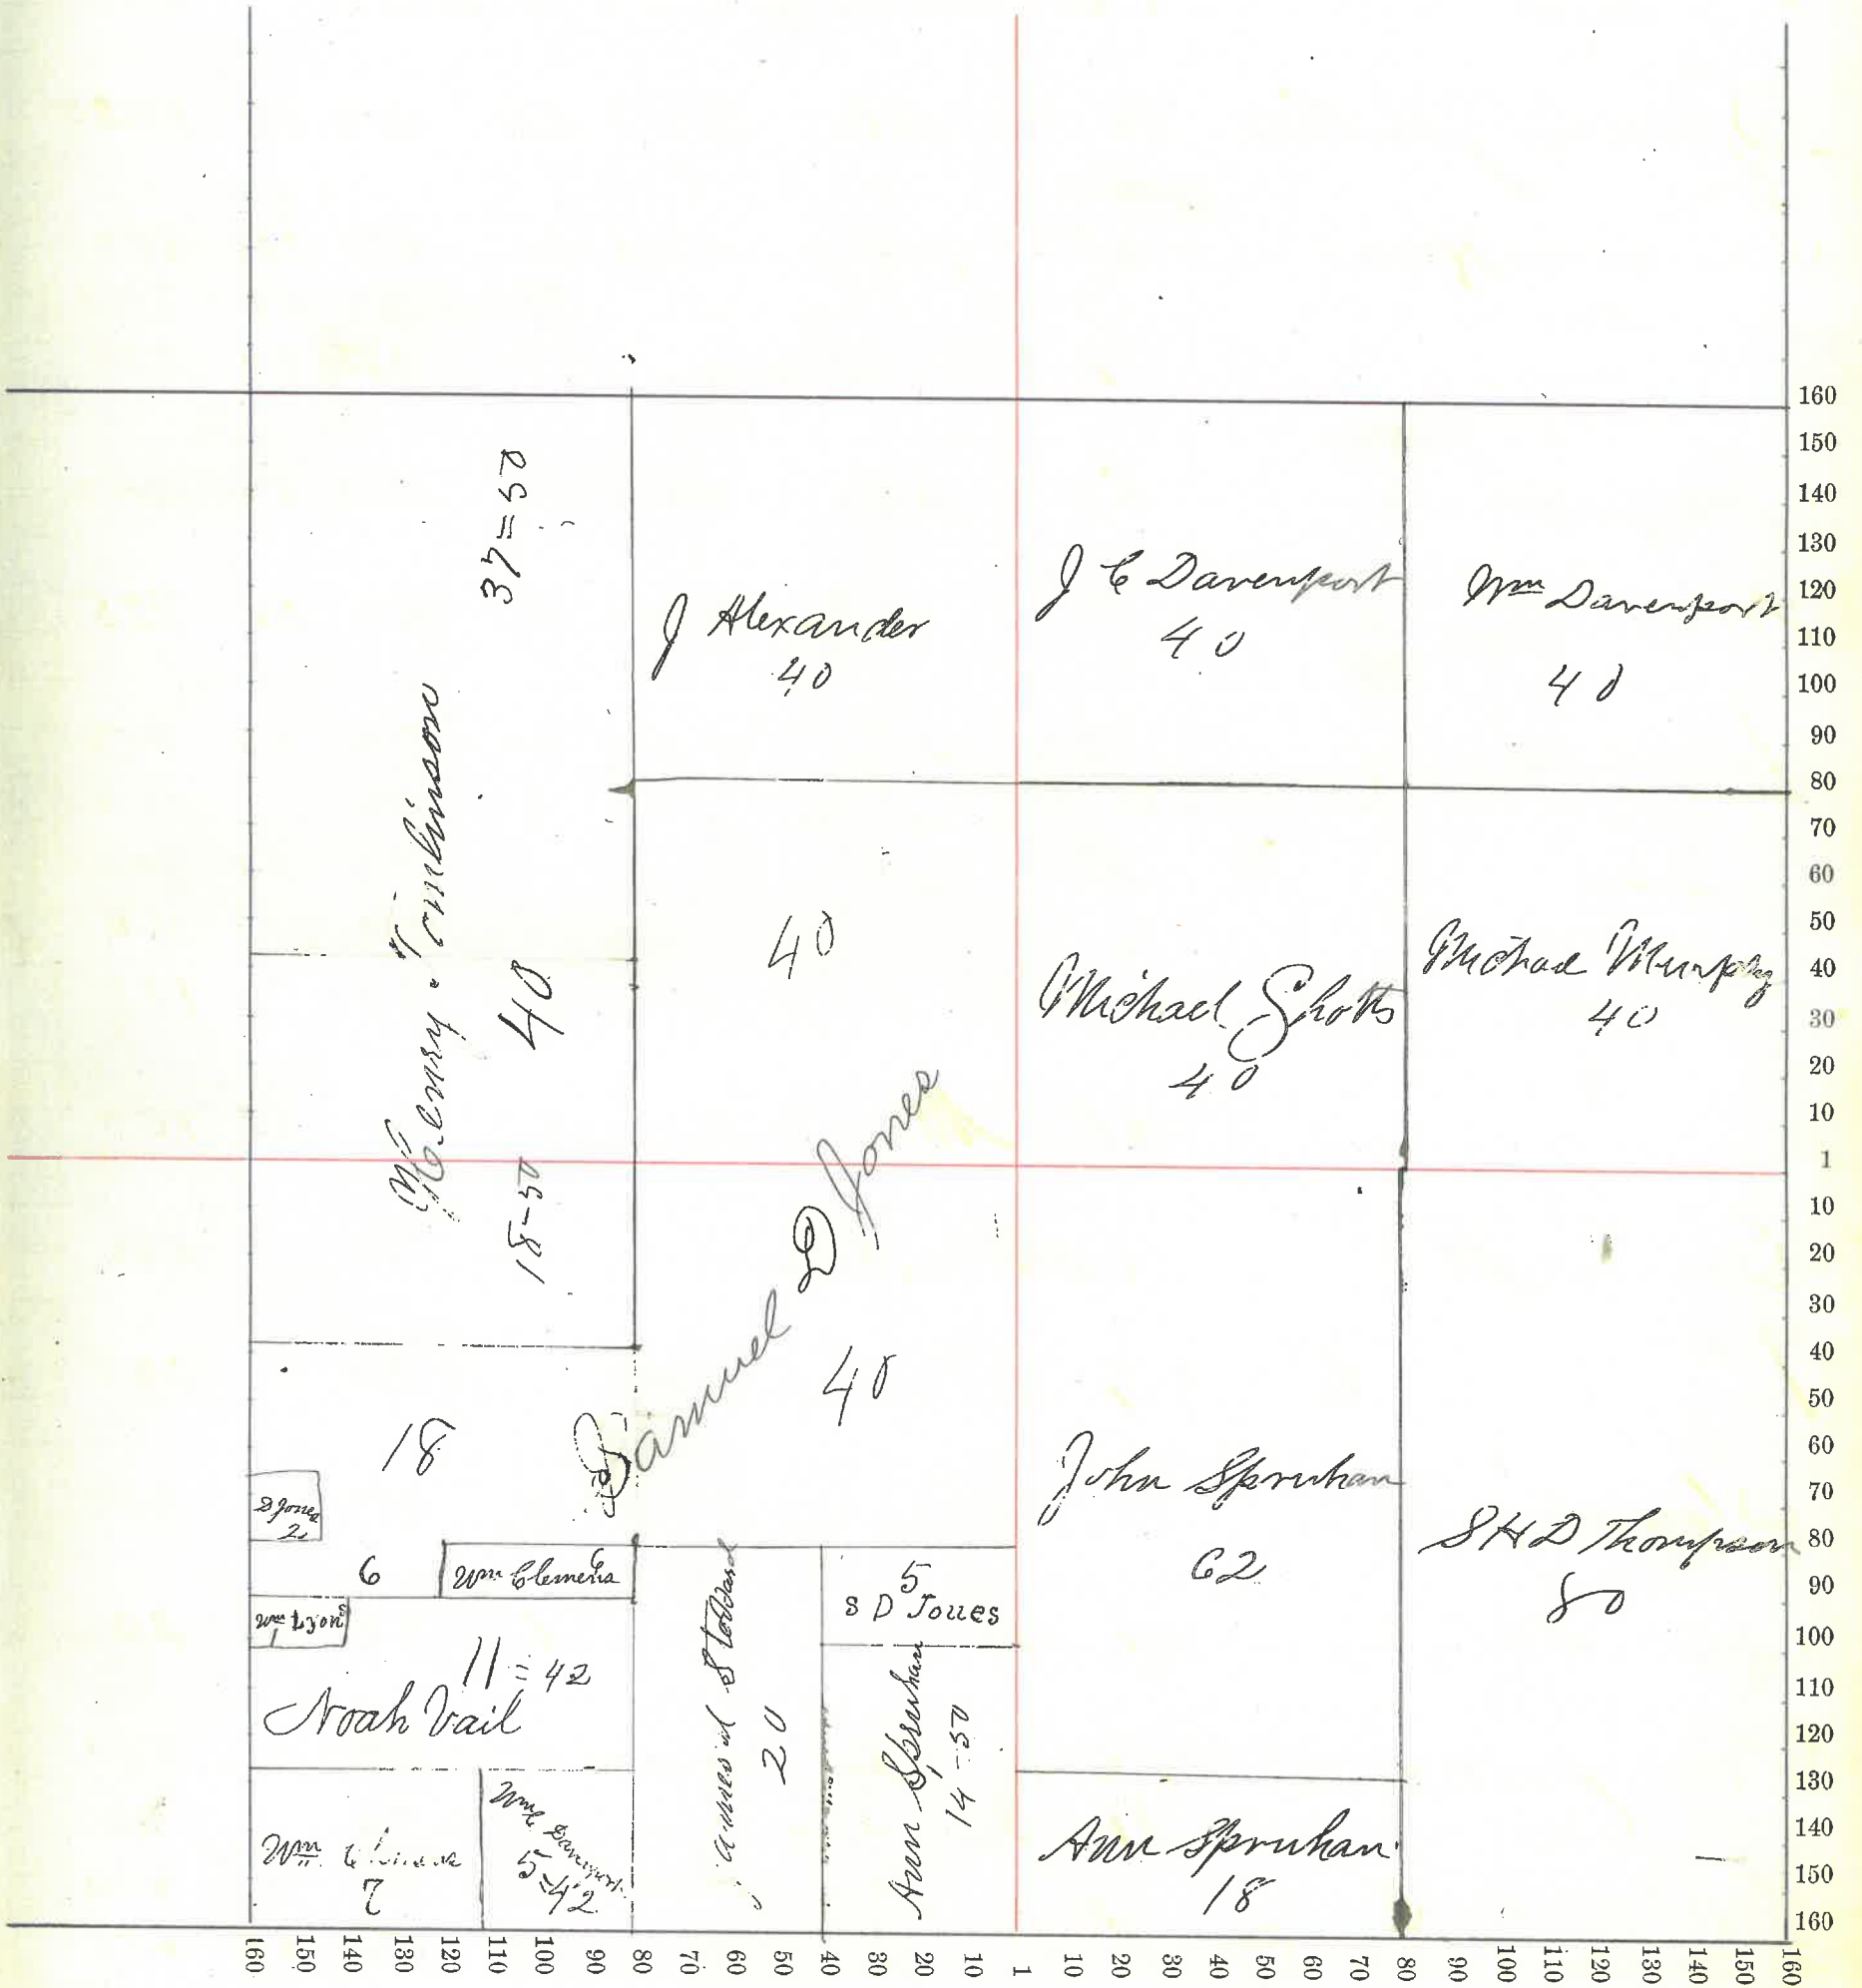 37=50
Henry Tomlinson
40
18-50
J Alexander
40
J C Davenport
40
Wm Davenport
40
40
Michael Shotts
40
Michael Murphy
40
Samuel D Jones
40
18
D Jones
2
6
Wm Clemens
6
Wm Lyon
1
11=42
Noah Vail
Wm
7
Wm Davenport
5=42
Stoddard
20
5
S D Jones
Ann Spruhan
14-50
John Spruhan
62
Ann Spruhan
18
S H D Thompson
80
160
150
140
130
120
110
100
90
80
70
60
50
40
30
20
10
1
10
20
30
40
50
60
70
80
90
100
110
120
130
140
150
160
160 150 140 130 120 110 100 90 80 70 60 50 40 30 20 10 1 10 20 30 40 50 60 70 80 90 100 110 120 130 140 150 160